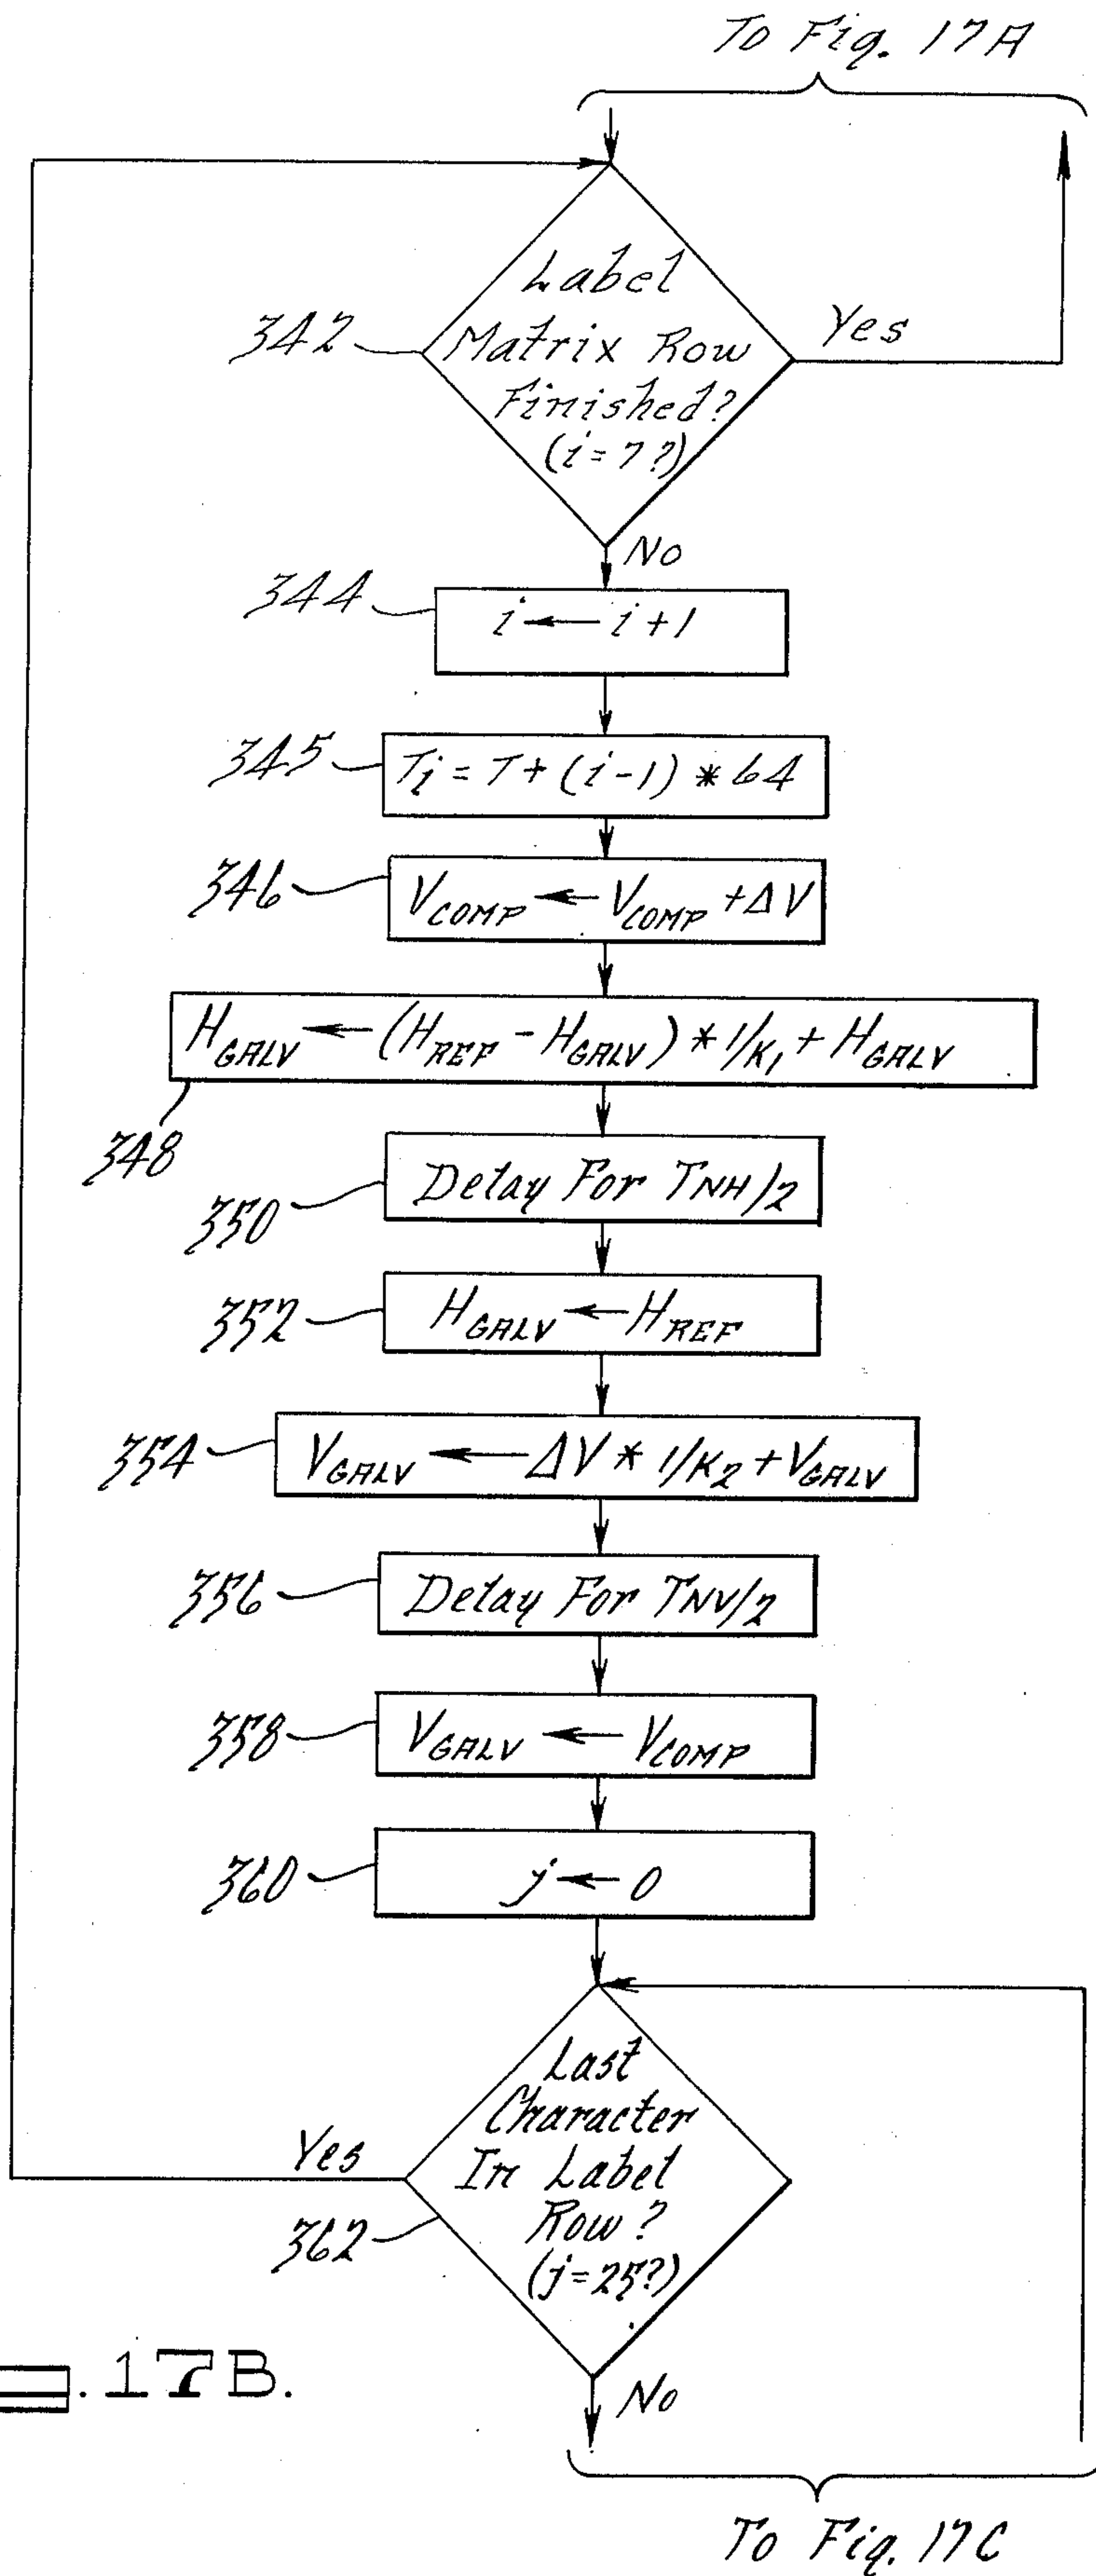 To Fig. 17A
Label
Matrix Row
Finished?
(i=7?)
342
Yes
No
344
i ← i+1
345
Ti = T + (i-1) * 64
346
VCOMP ← VCOMP + ΔV
HGALV ← (HREF - HGALV) * 1/K1 + HGALV
348
Delay For TNH/2
350
352
HGALV ← HREF
354
VGALV ← ΔV * 1/K2 + VGALV
356
Delay For TNV/2
358
VGALV ← VCOMP
360
j ← 0
Last
Character
In Label
Row?
(j=25?)
Yes
362
No
. 17B.
To Fig. 17C